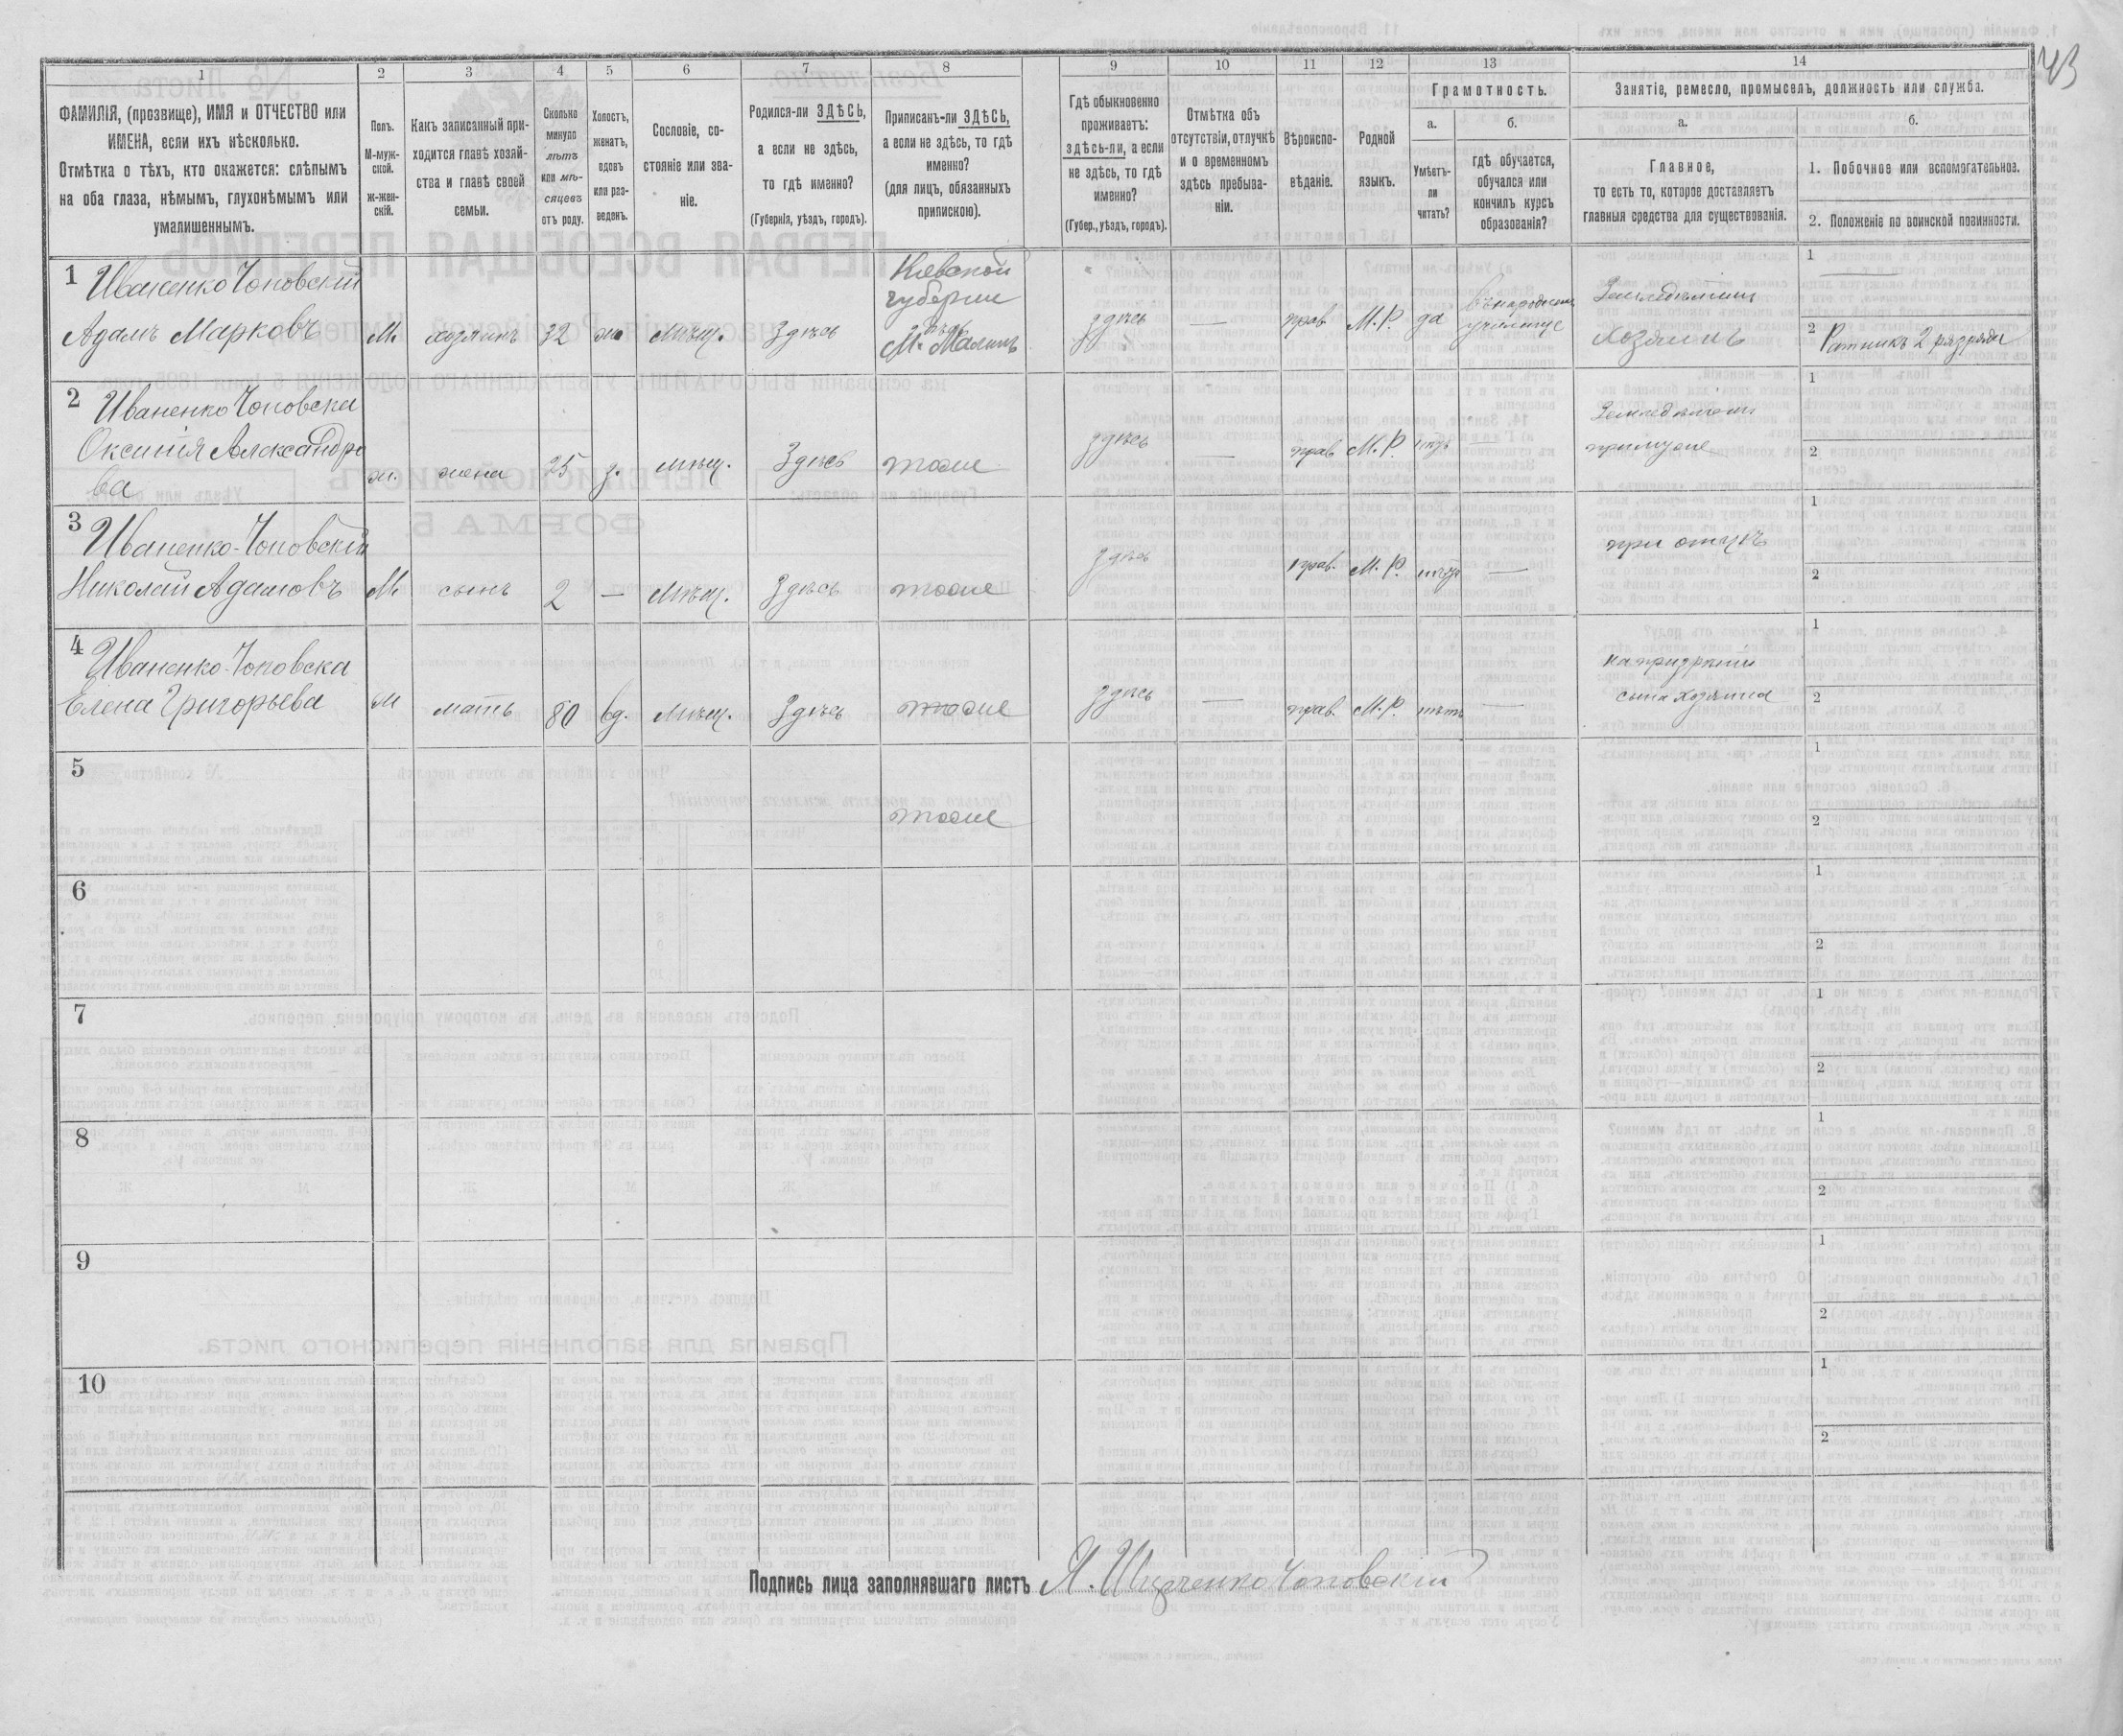 43
1
2
3
4
5
6
7
8
9
10
11
12
13
14
ФАМИЛІЯ, (прозвище), ИМЯ и ОТЧЕСТВО или
ИМЕНА, если ихъ нѣсколько.
Отмѣтка о тѣхъ, кто окажется: слѣпымъ
на оба глаза, нѣмымъ, глухонѣмымъ или
умалишеннымъ.
Полъ.
М-муж-
ской.
ж-жен-
скій.
Какъ записанный при-
ходится главѣ хозяй-
ства и главѣ своей
семьи.
Сколько
минуло
лѣтъ
или мѣ-
сяцевъ
отъ роду.
Холостъ,
женатъ,
вдовъ
или раз-
веденъ.
Сословіе, со-
стояніе или зва-
ніе.
Родился-ли ЗДѢСЬ,
а если не здѣсь,
то гдѣ именно?
(Губернія, уѣздъ, городъ).
Приписанъ-ли ЗДѢСЬ,
а если не здѣсь, то гдѣ
именно?
(для лицъ, обязанныхъ
припискою).
Гдѣ обыкновенно
проживаетъ:
здѣсь-ли, а если
не здѣсь, то гдѣ
именно?
(Губер., уѣздъ, городъ).
Отмѣтка объ
отсутствіи, отлучкѣ
и о временномъ
здѣсь пребыва-
ніи.
Вѣроиспо-
вѣданіе.
Родной
языкъ.
Грамотность.
а.
Умѣетъ-
ли
читать?
б.
гдѣ обучается,
обучался или
кончилъ курсъ
образованія?
Занятіе, ремесло, промыселъ, должность или служба.
а.
Главное,
то есть то, которое доставляетъ
главныя средства для существованія.
б.
1. Побочное или вспомогательное.
2. Положеніе по воинской повинности.
1 Иваненко Чоповскій
Адамъ Марковъ
М.
хозяинъ
32
ж
мѣщ.
Здѣсь
Кіевской
губерніи
М. Малинъ
здѣсь
—
прав.
М.Р.
да
въ народномъ
училище
Земледѣлецъ
хозяинъ
1
2 Ратникъ 2 разряда
2 Иваненко Чоповска
Оксинія Александро
ва
ж.
жена
25
з.
мѣщ.
Здѣсь
тоже
здѣсь
—
прав.
М.Р.
нѣтъ
Земледѣлецъ
при мужѣ
1
2
3 Иваненко-Чоповскій
Николай Адамовъ
М.
сынъ
2
—
мѣщ.
Здѣсь
тоже
здѣсь
прав.
М.Р.
нѣтъ
—
при отцѣ
1
2
4 Иваненко-Чоповска
Елена Григорьева
М
мать
80
вд.
мѣщ.
Здѣсь
тоже
здѣсь
—
прав.
М.Р.
нѣтъ
—
на призрѣніи
сына хозяина
1
2
5
тоже
1
2
6
1
2
7
1
2
8
1
2
9
1
2
10
1
2
Подпись лица заполнявшаго листъ А. Иваненко Чоповскій